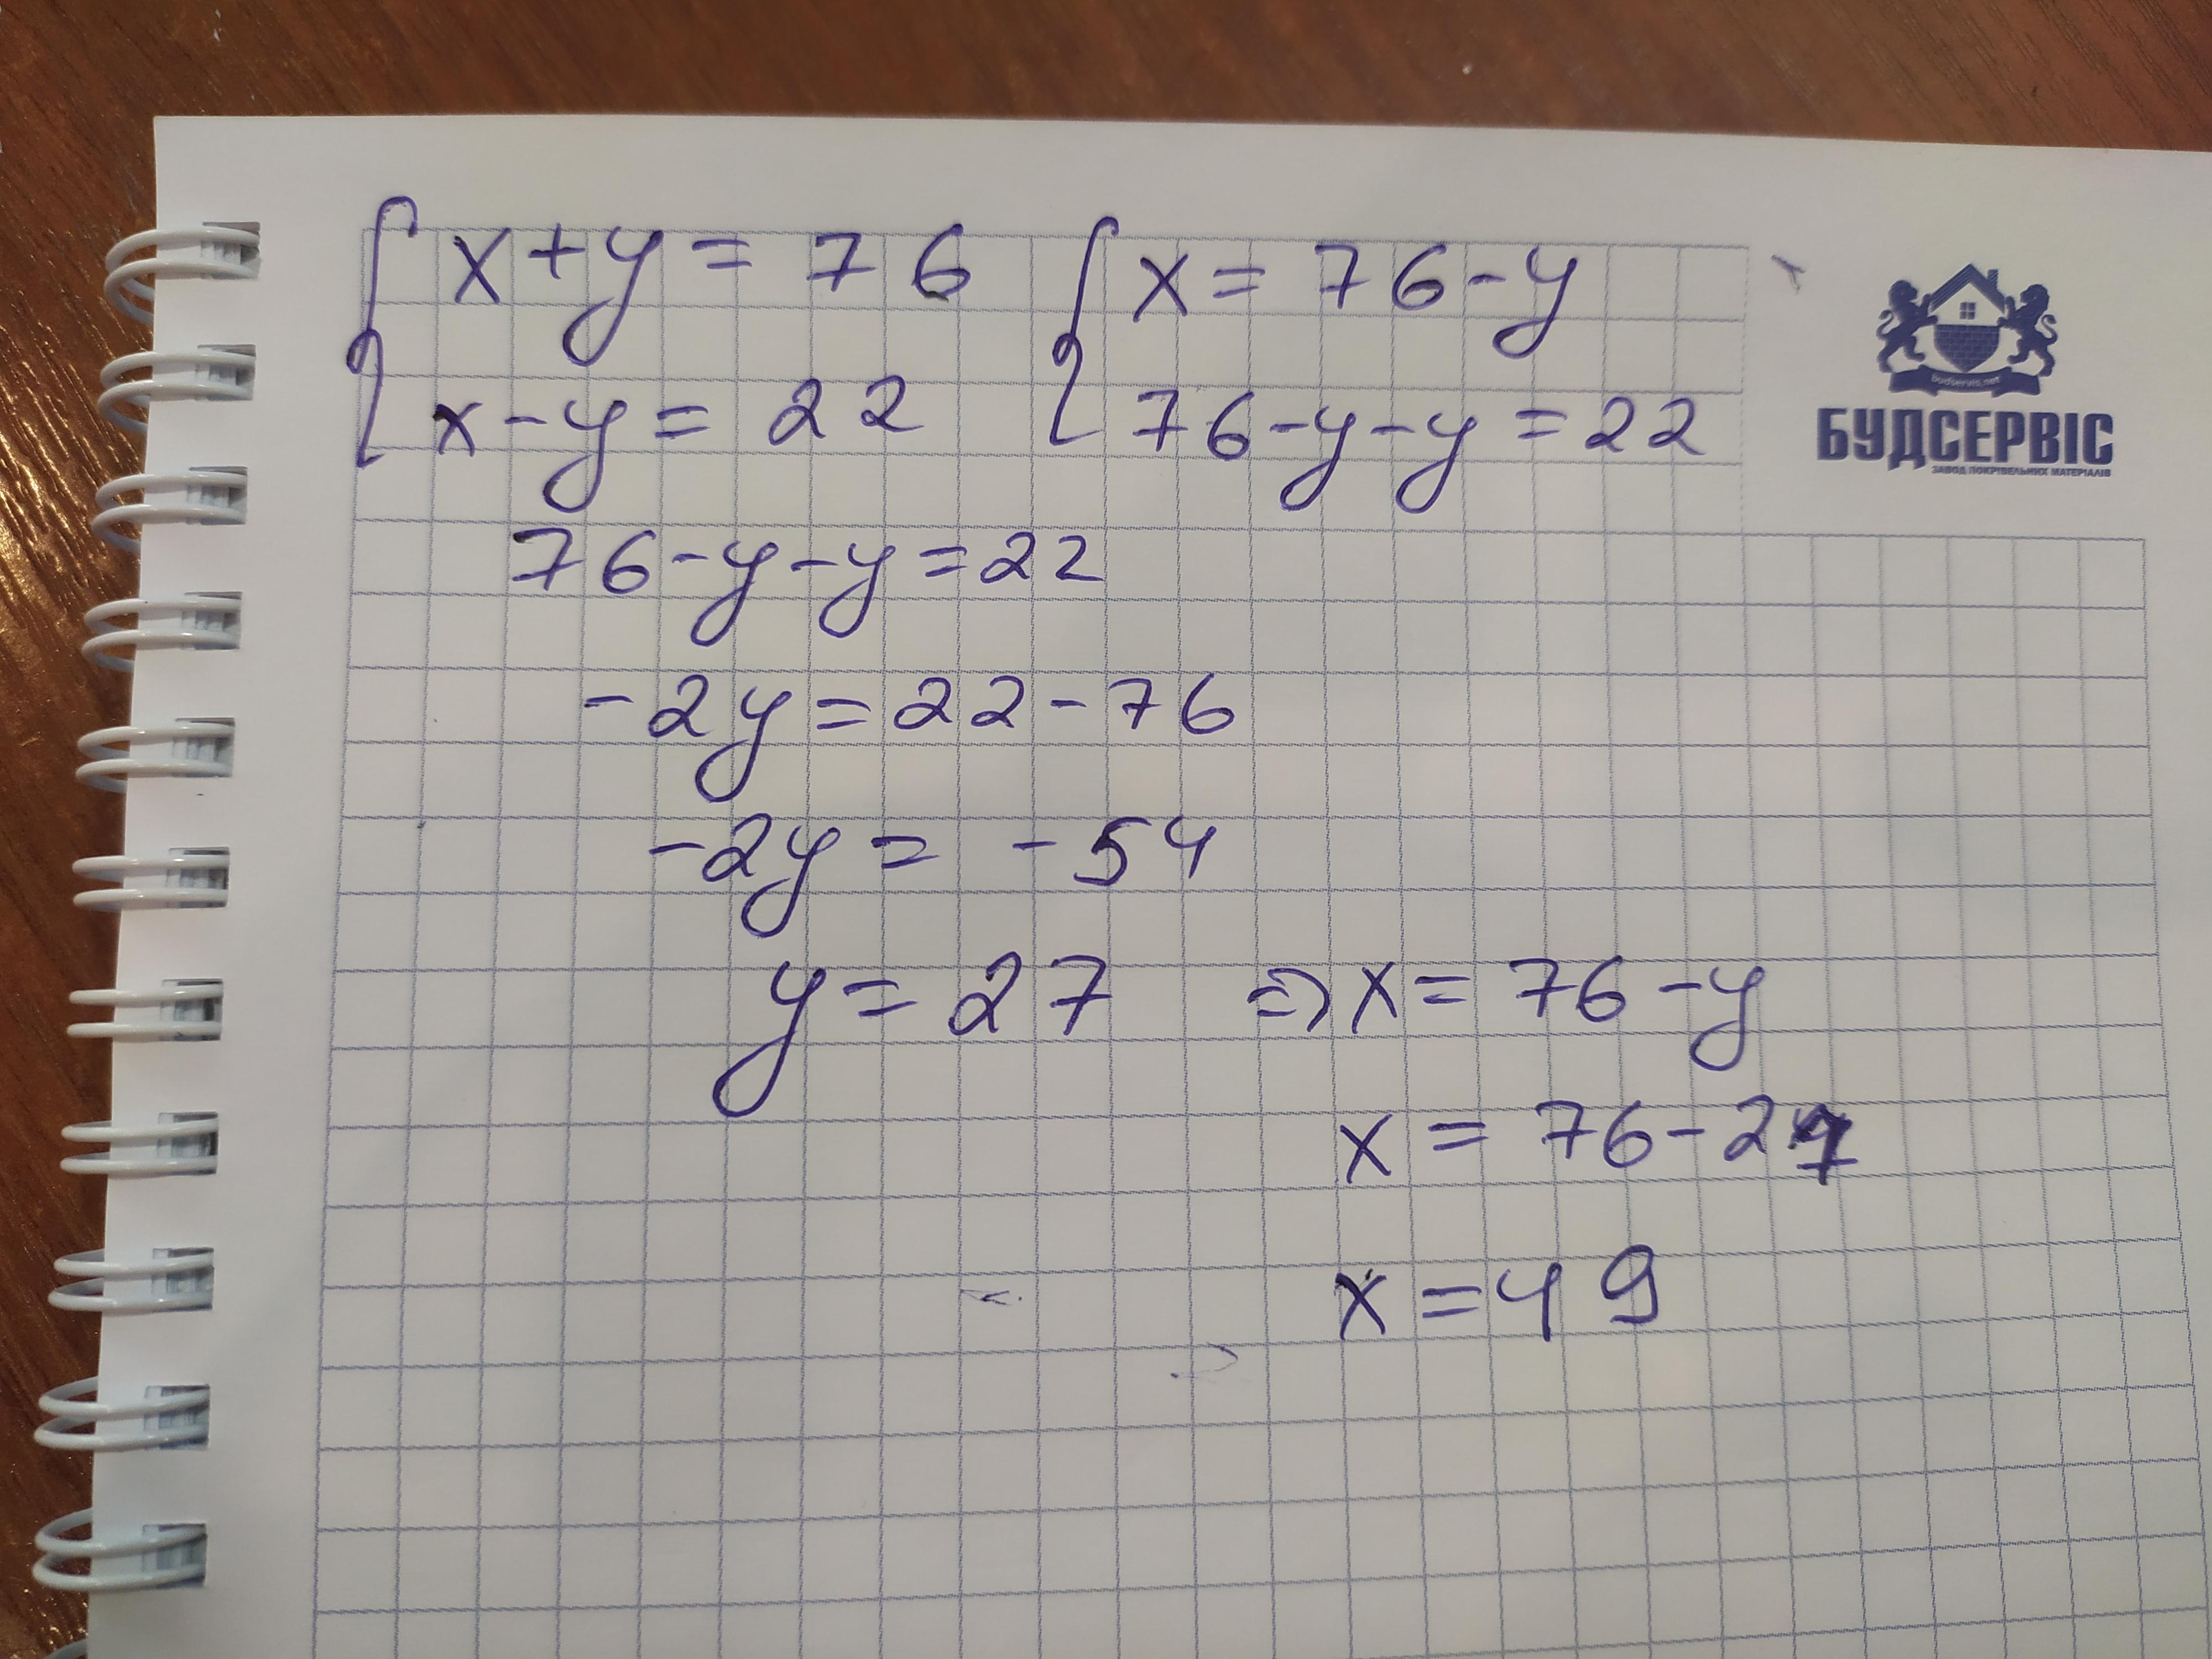 x+y=76
x-y=22
x=76-y
76-y-y=22
budservis.net
БУДСЕРВІС
ЗАВОД ПОКРІВЕЛЬНИХ МАТЕРІАЛІВ
76-y-y=22
-2y=22-76
-2y=-54
y=27 ⇒ x=76-y
x=76-27
x=49